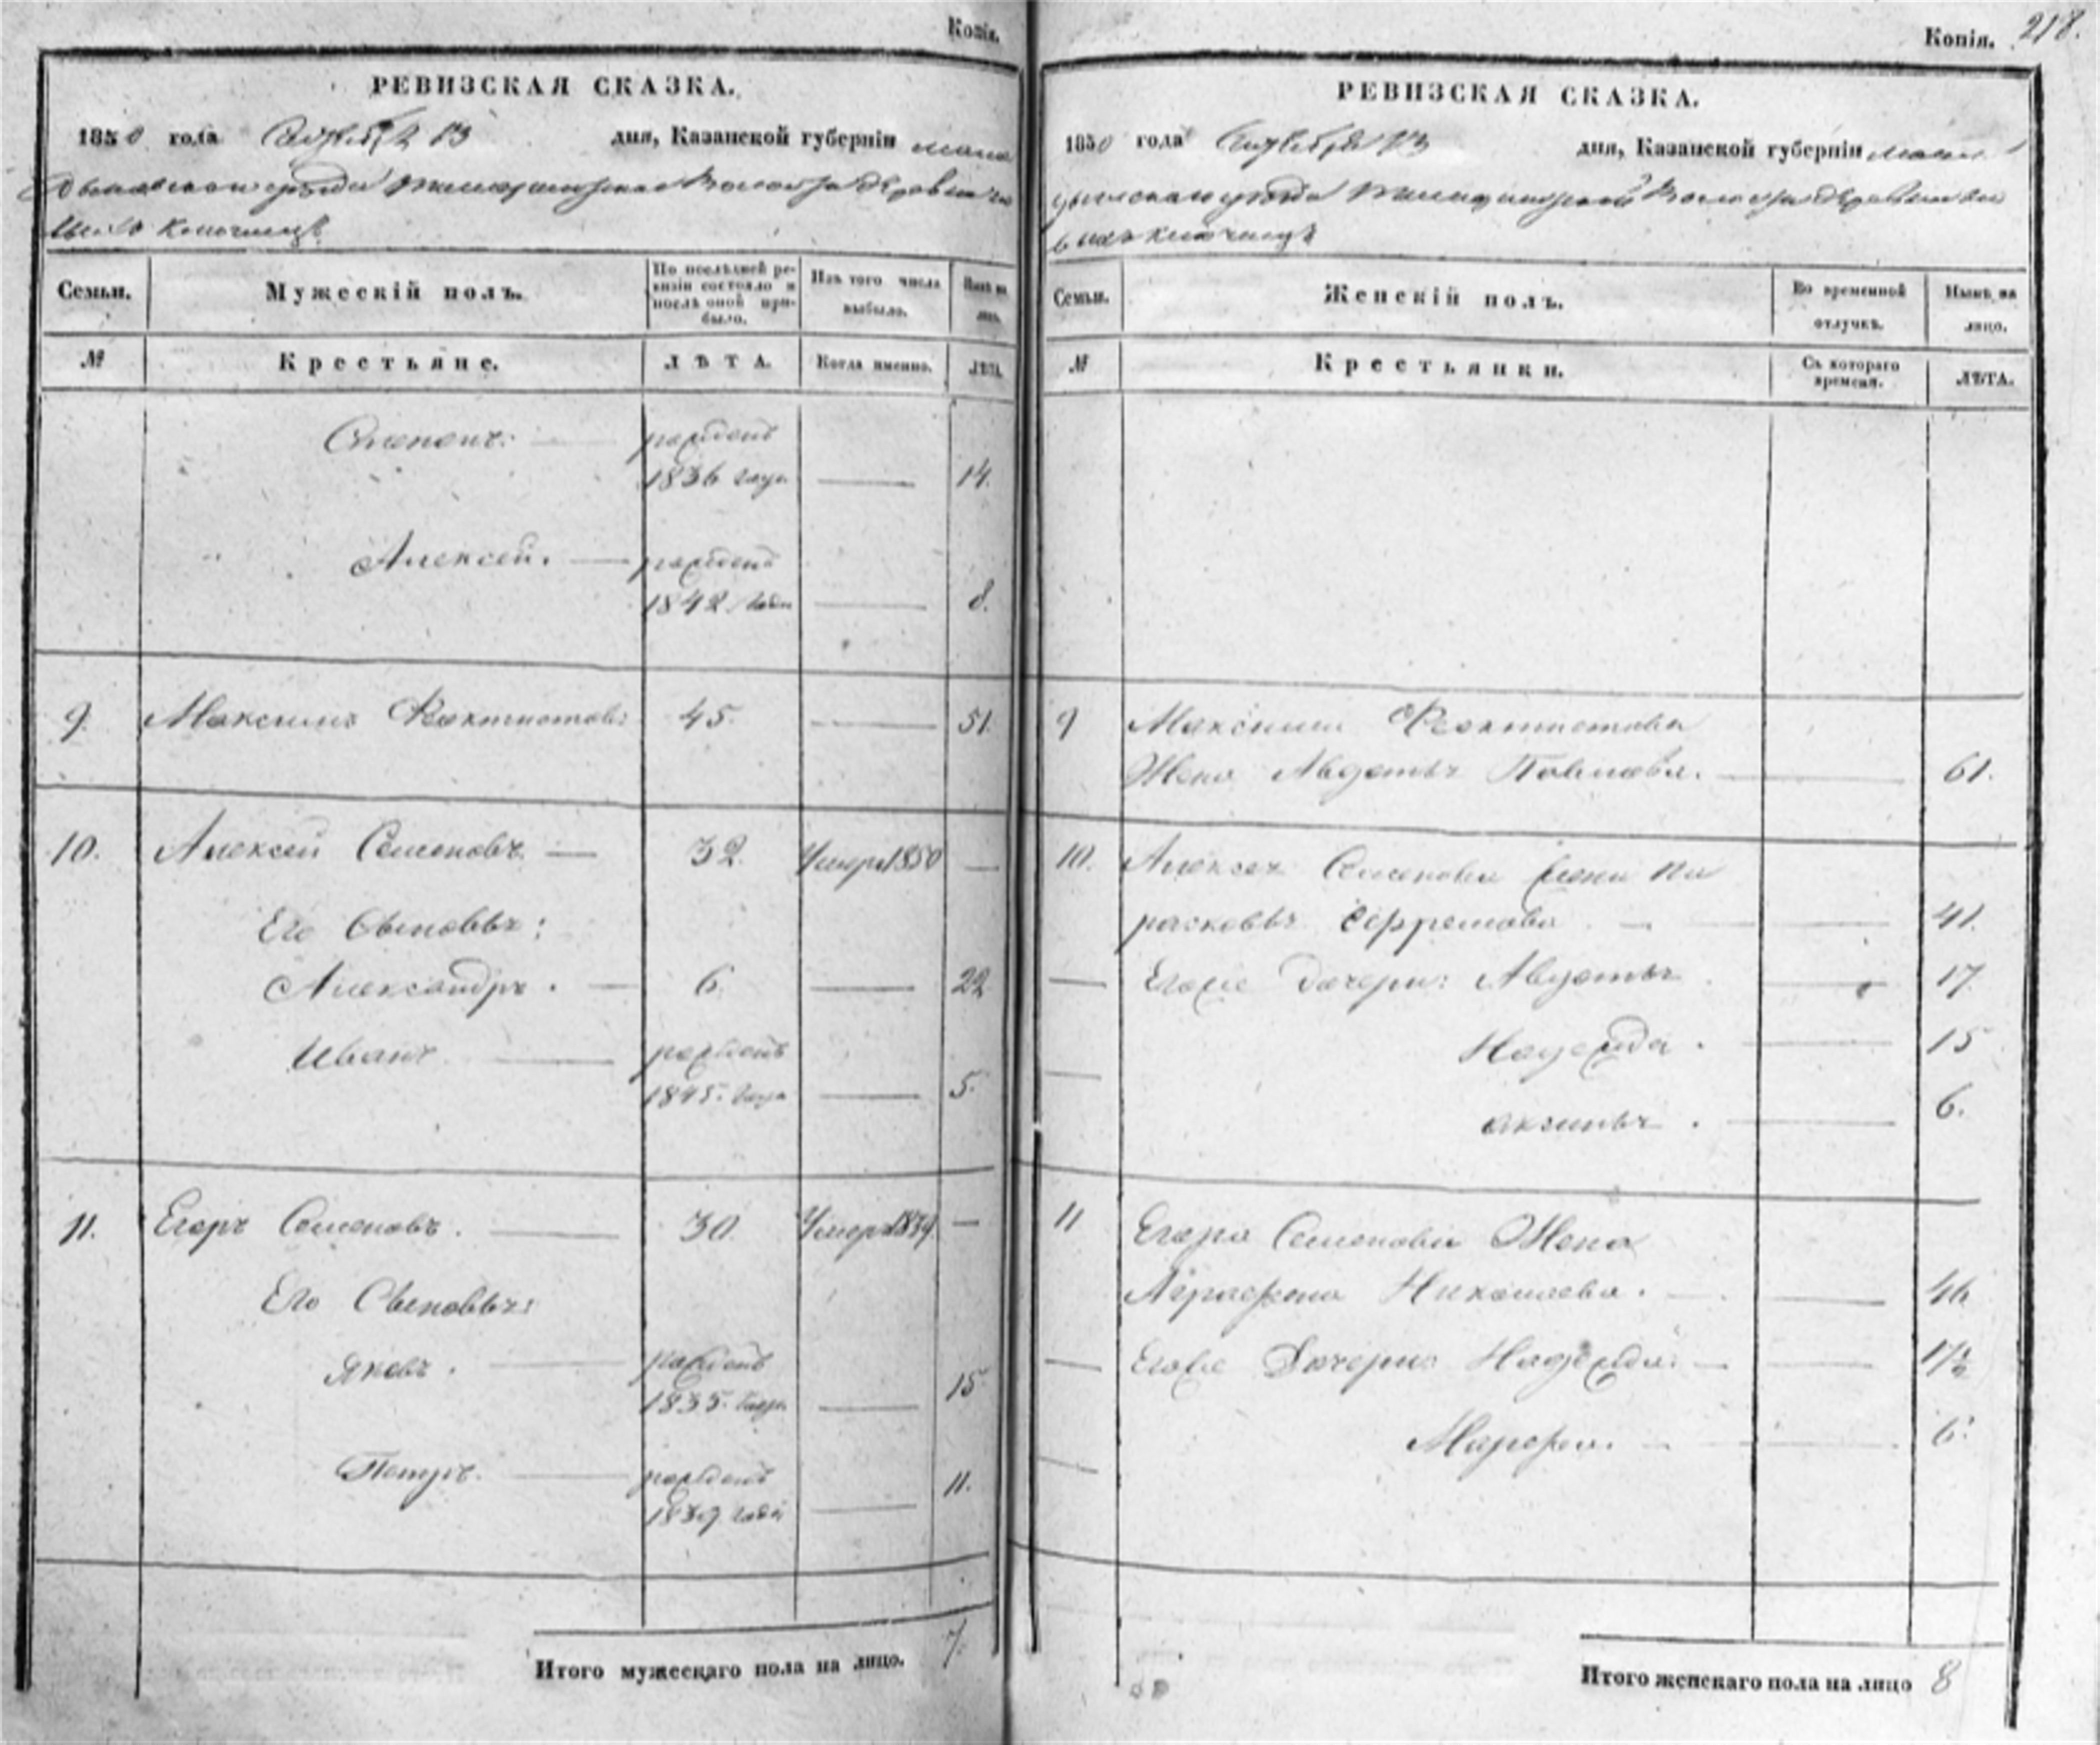 Копія.
РЕВИЗСКАЯ СКАЗКА.
1850 года Октября 13 дня, Казанской губерніи Мама
дышскаго уѣзда волости деревни
Ключища
Семьи. Мужескій полъ. По послѣдней ре-
визіи состояло и
послѣ оной при-
было. Изъ того числа
выбыло. Нынѣ на
лицо.
№ Крестьяне. ЛѢТА. Когда именно. ЛѢТА.
Степанъ. рожденъ
1836 года 14.
Алексей. рожденъ
1842 года 8.
9. Максимъ Феоктистовъ 45. 51.
10. Алексей Семеновъ 32. Умеръ 1850
Его Сыновья:
Александръ. 6. 22
Иванъ рожденъ
1845 года 5.
11. Егоръ Семеновъ. 30. Умеръ 1839
Его Сыновья:
Яковъ. рожденъ
1835 года 15.
Петръ. рожденъ
1839 года 11.
Итого мужескаго пола на лицо. 7.
Копія. 218.
РЕВИЗСКАЯ СКАЗКА.
1850 года Октября 13 дня, Казанской губерніи Мама
дышскаго уѣзда волости деревни
Ключищъ
Семьи. Женскій полъ. Во временной
отлучкѣ. Нынѣ на
лицо.
№ Крестьянки. Съ котораго
времени. ЛѢТА.
9 Максима Феоктистова
Жена Авдотья Павлова. 61.
10. Алексея Семенова жена Па
расковья Ефремова 41.
Егоже дочери: Авдотья 17.
Надежда. 15
Аксинья. 6.
11 Егора Семенова Жена
Аграфена Николаева. 46
Егоже Дочери: Надежда.
Марфа. 6.
Итого женскаго пола на лицо 8